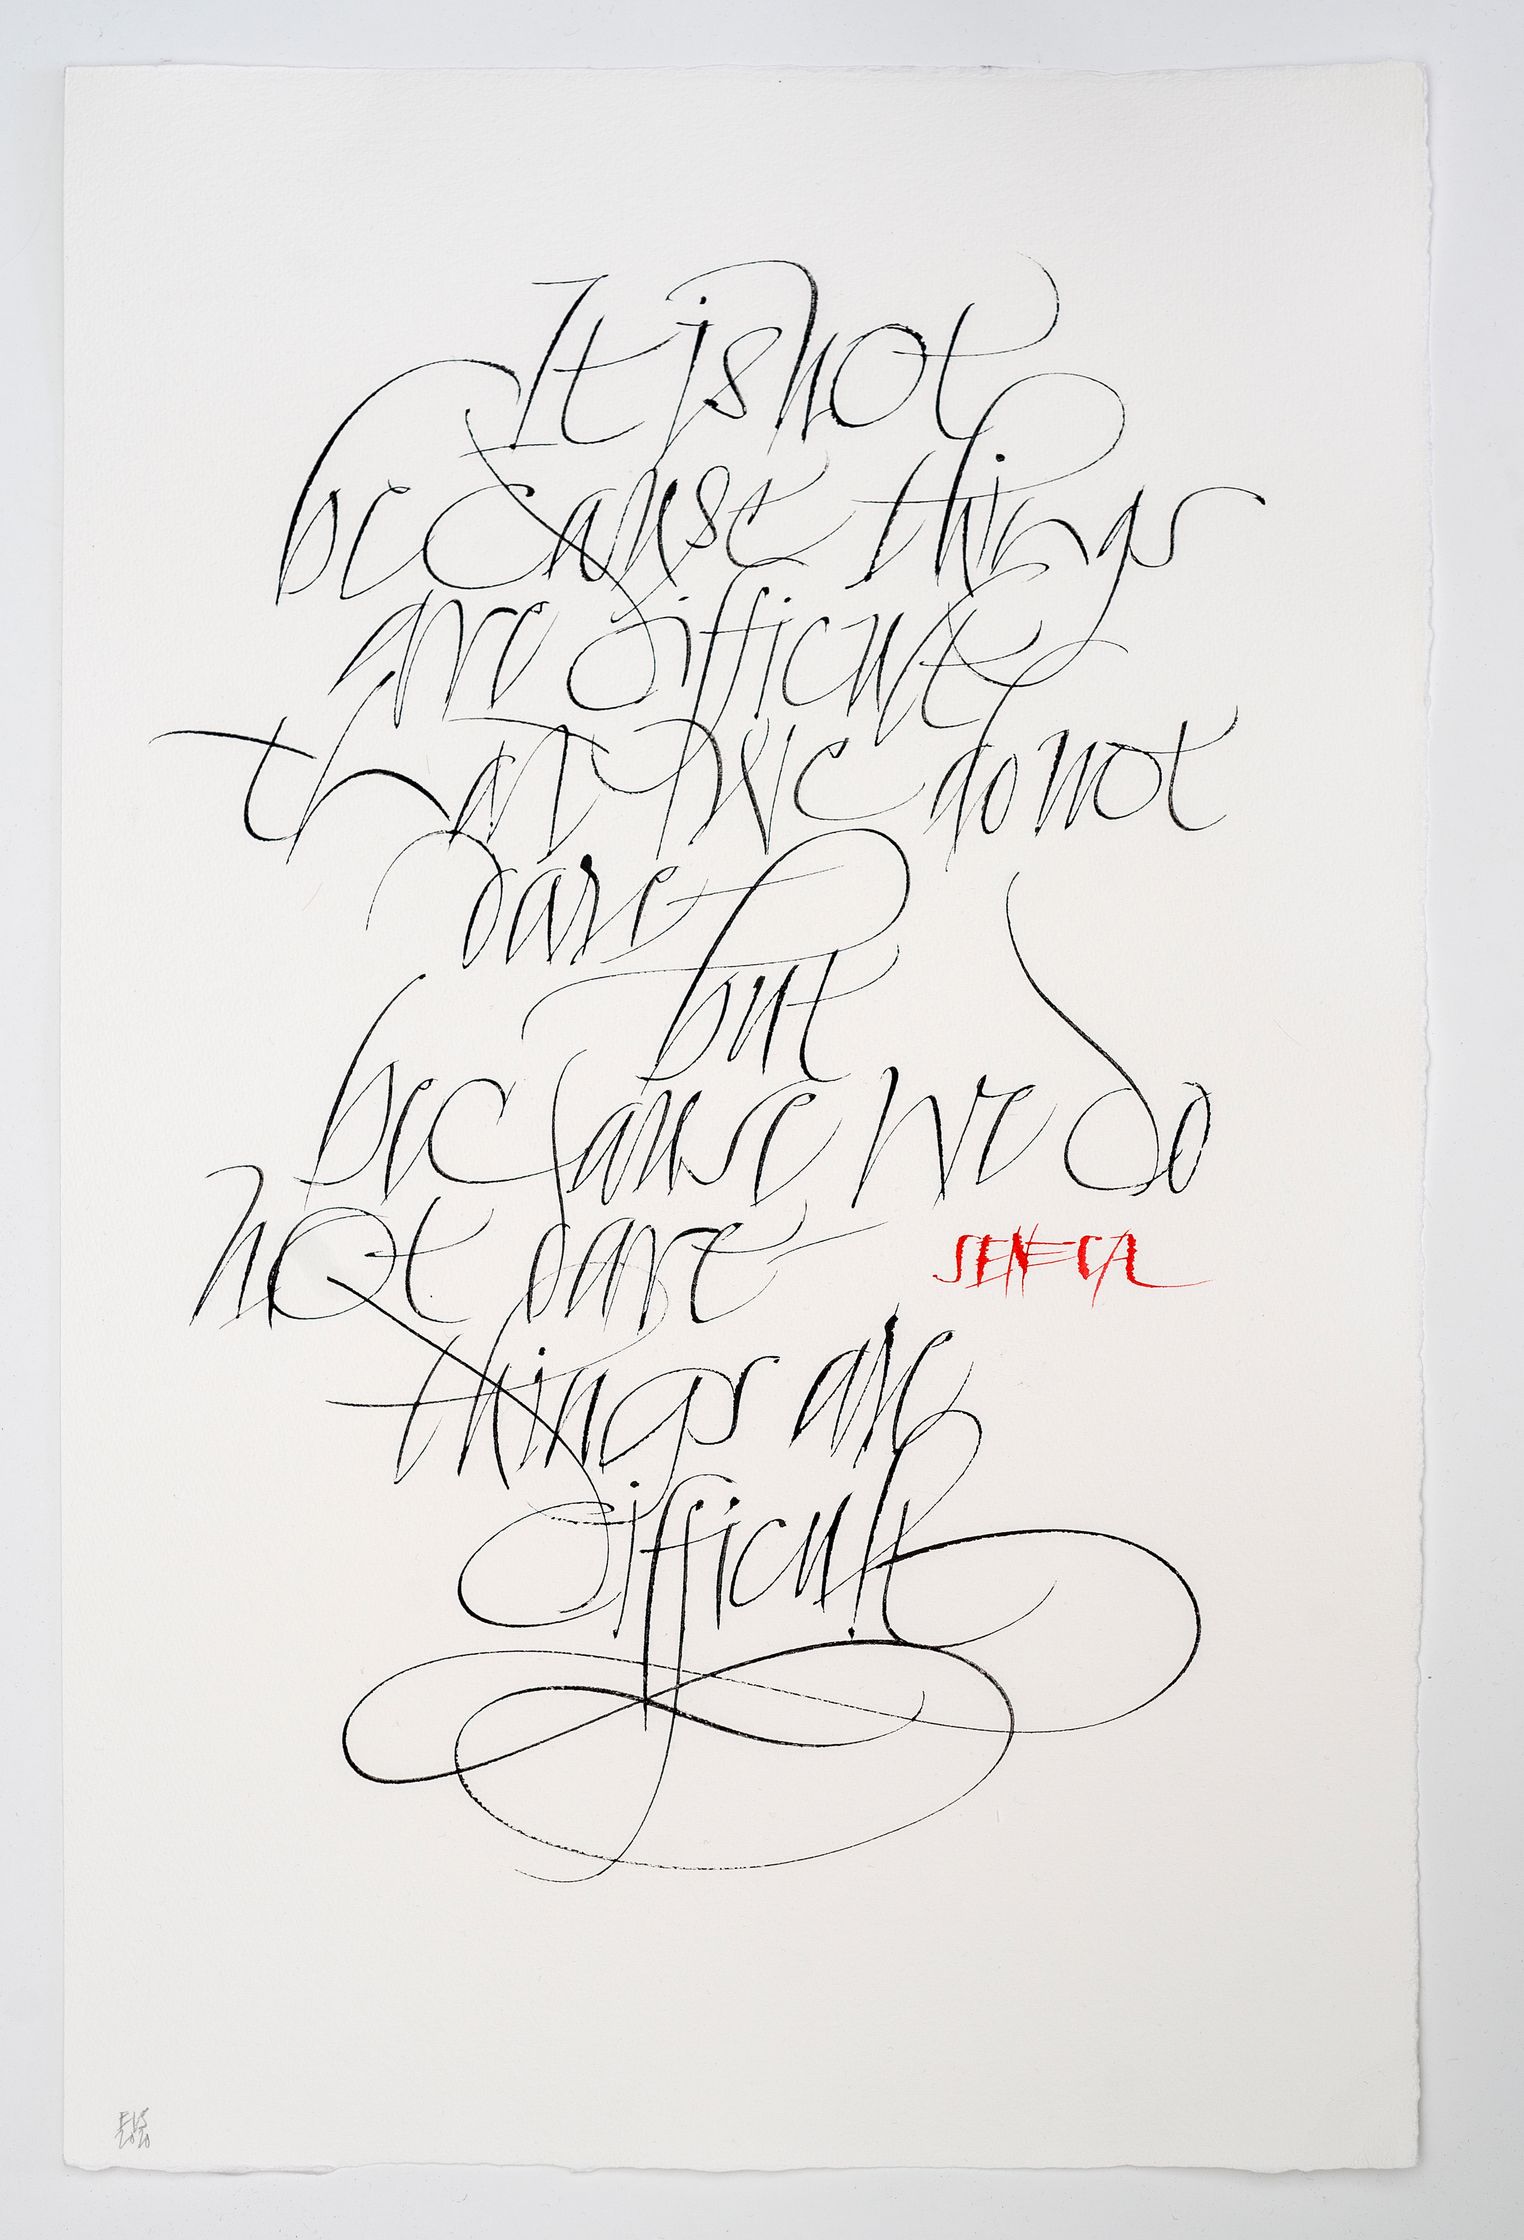 It is not
because things
are difficult
that we do not
dare
but
because we do
not dare
SENECA
things are
difficult
2020